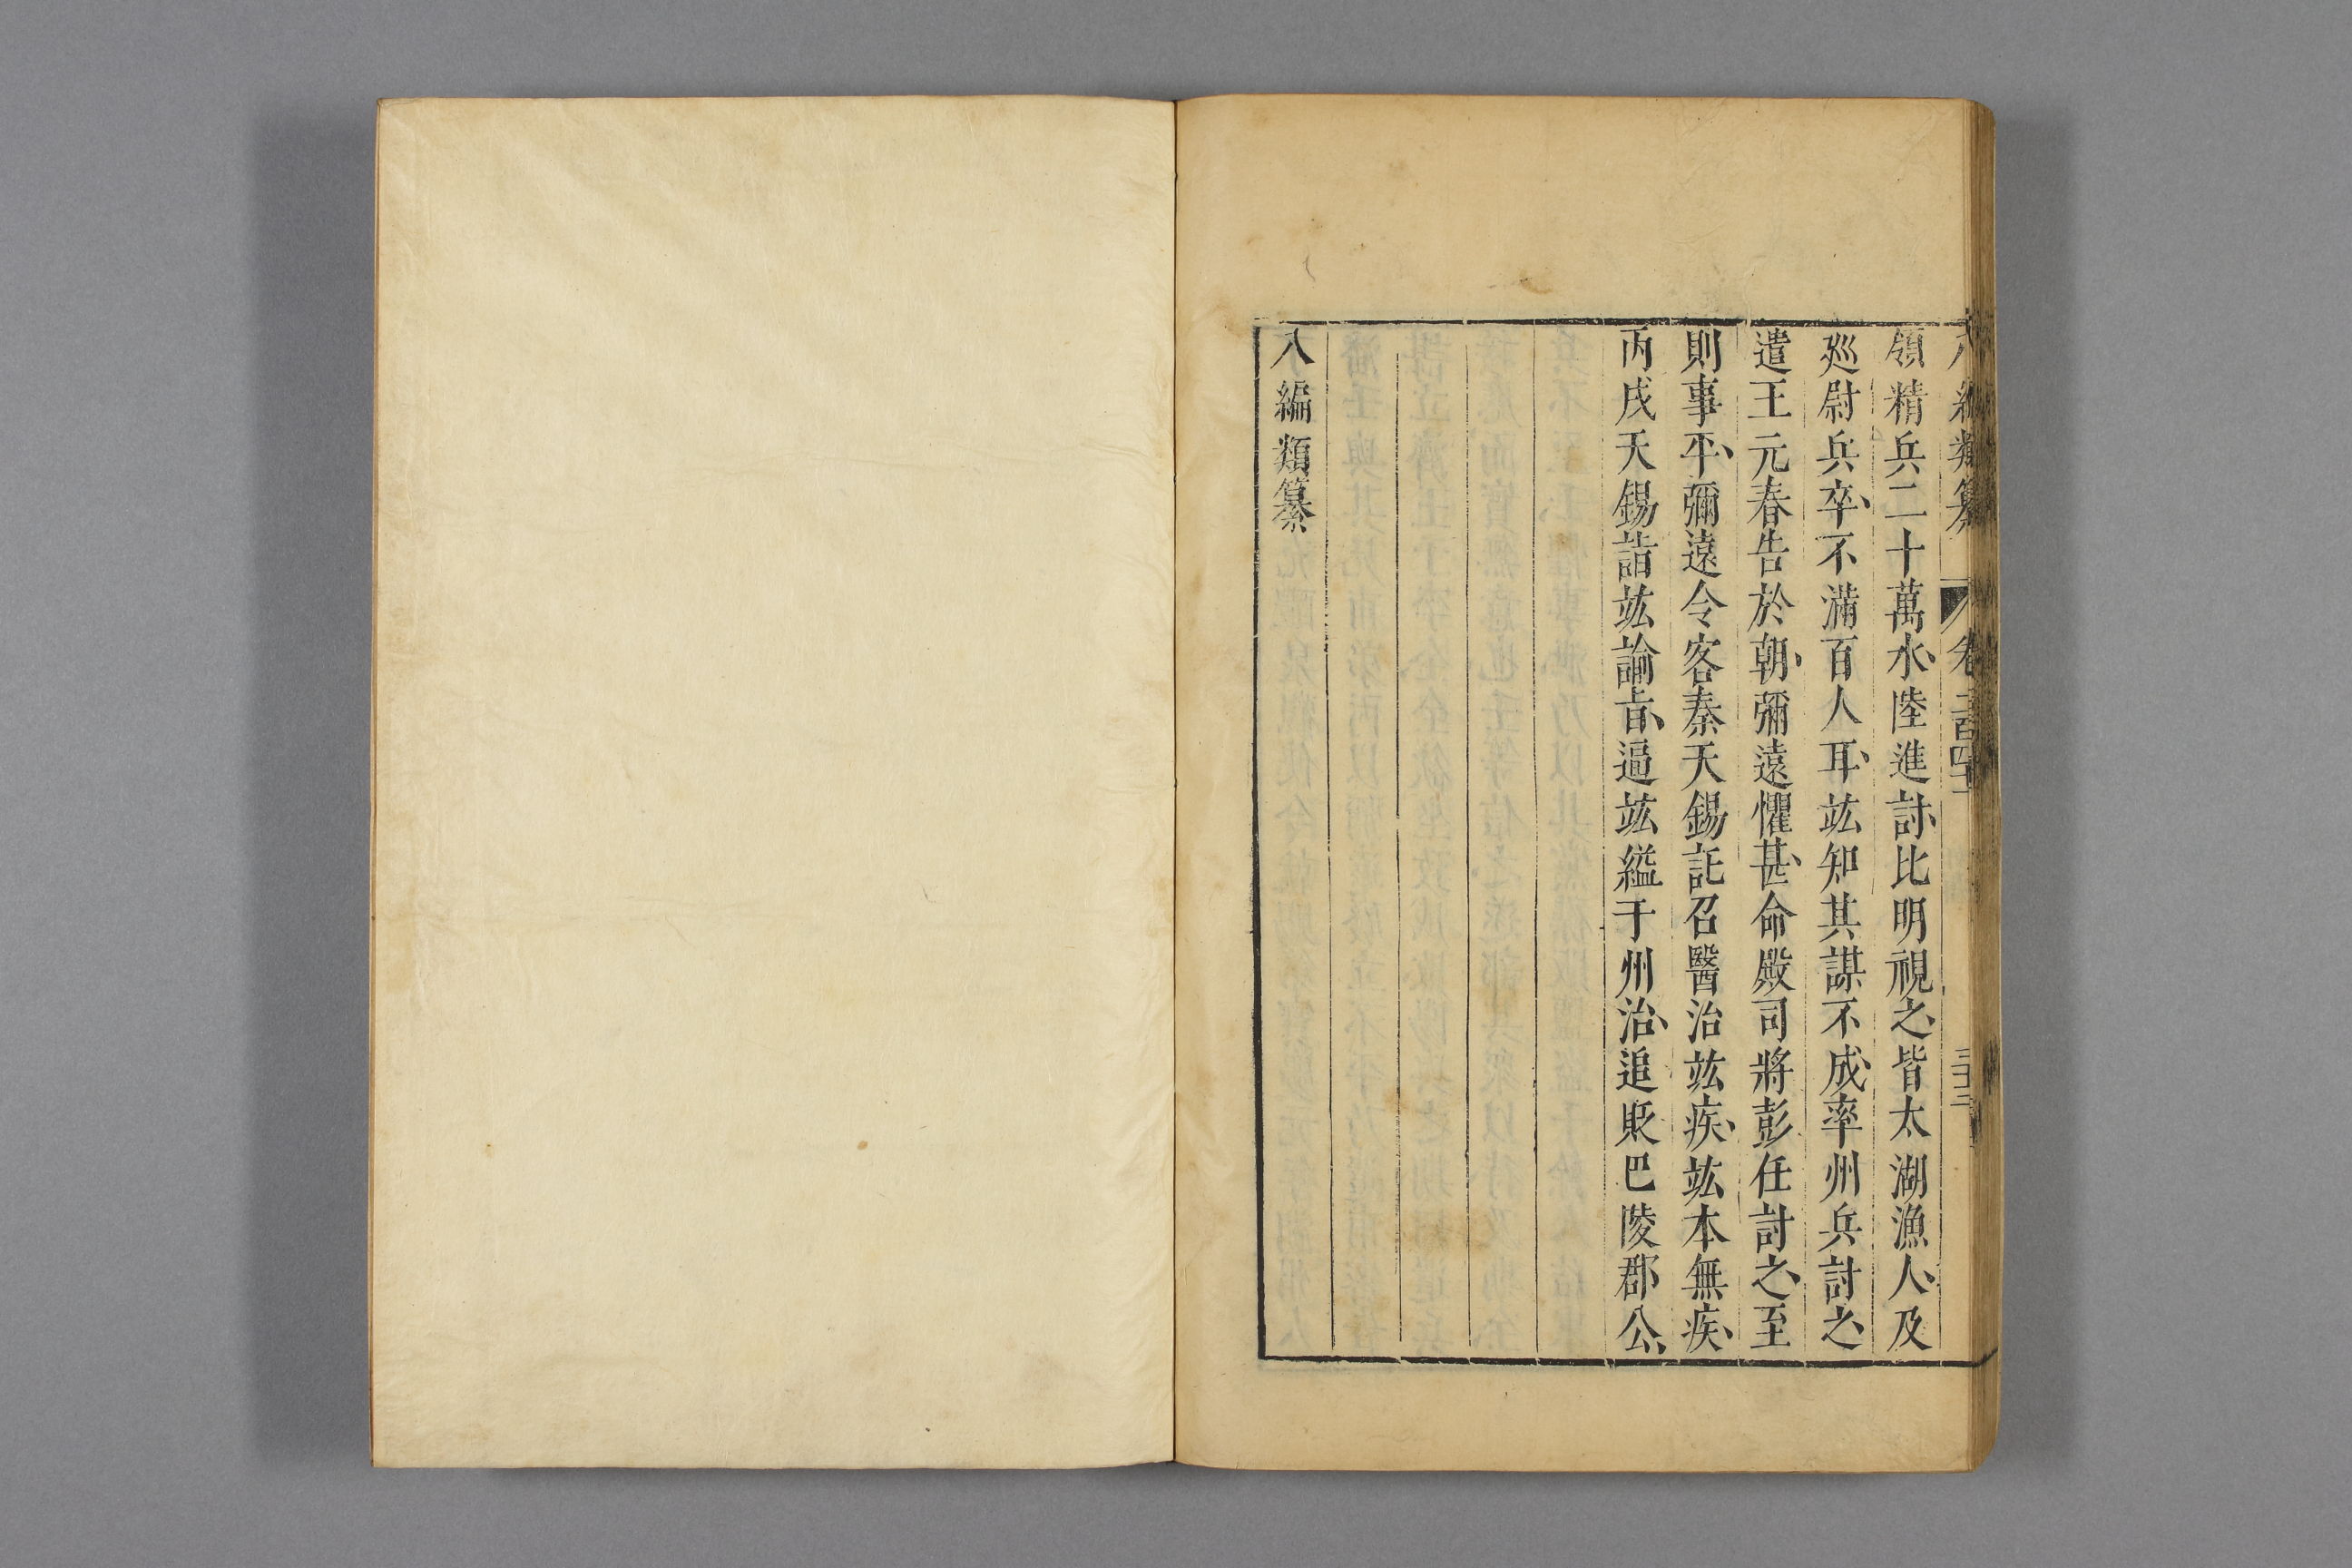 八編類纂 卷二百四十一 三十三
領精兵二十萬水、陸進討、比明視之、皆太湖漁人、及
廵尉兵卒、不滿百人耳、竑知其謀不成、率州兵討之、
遣王元春告於朝、彌遠懼甚、命殿司將彭任討之、至
則事平、彌遠令客秦天錫託召醫治竑疾、竑本無疾、
丙戌天錫詣竑諭旨、逼竑縊于州治、追貶巴陵郡公、
八編類纂